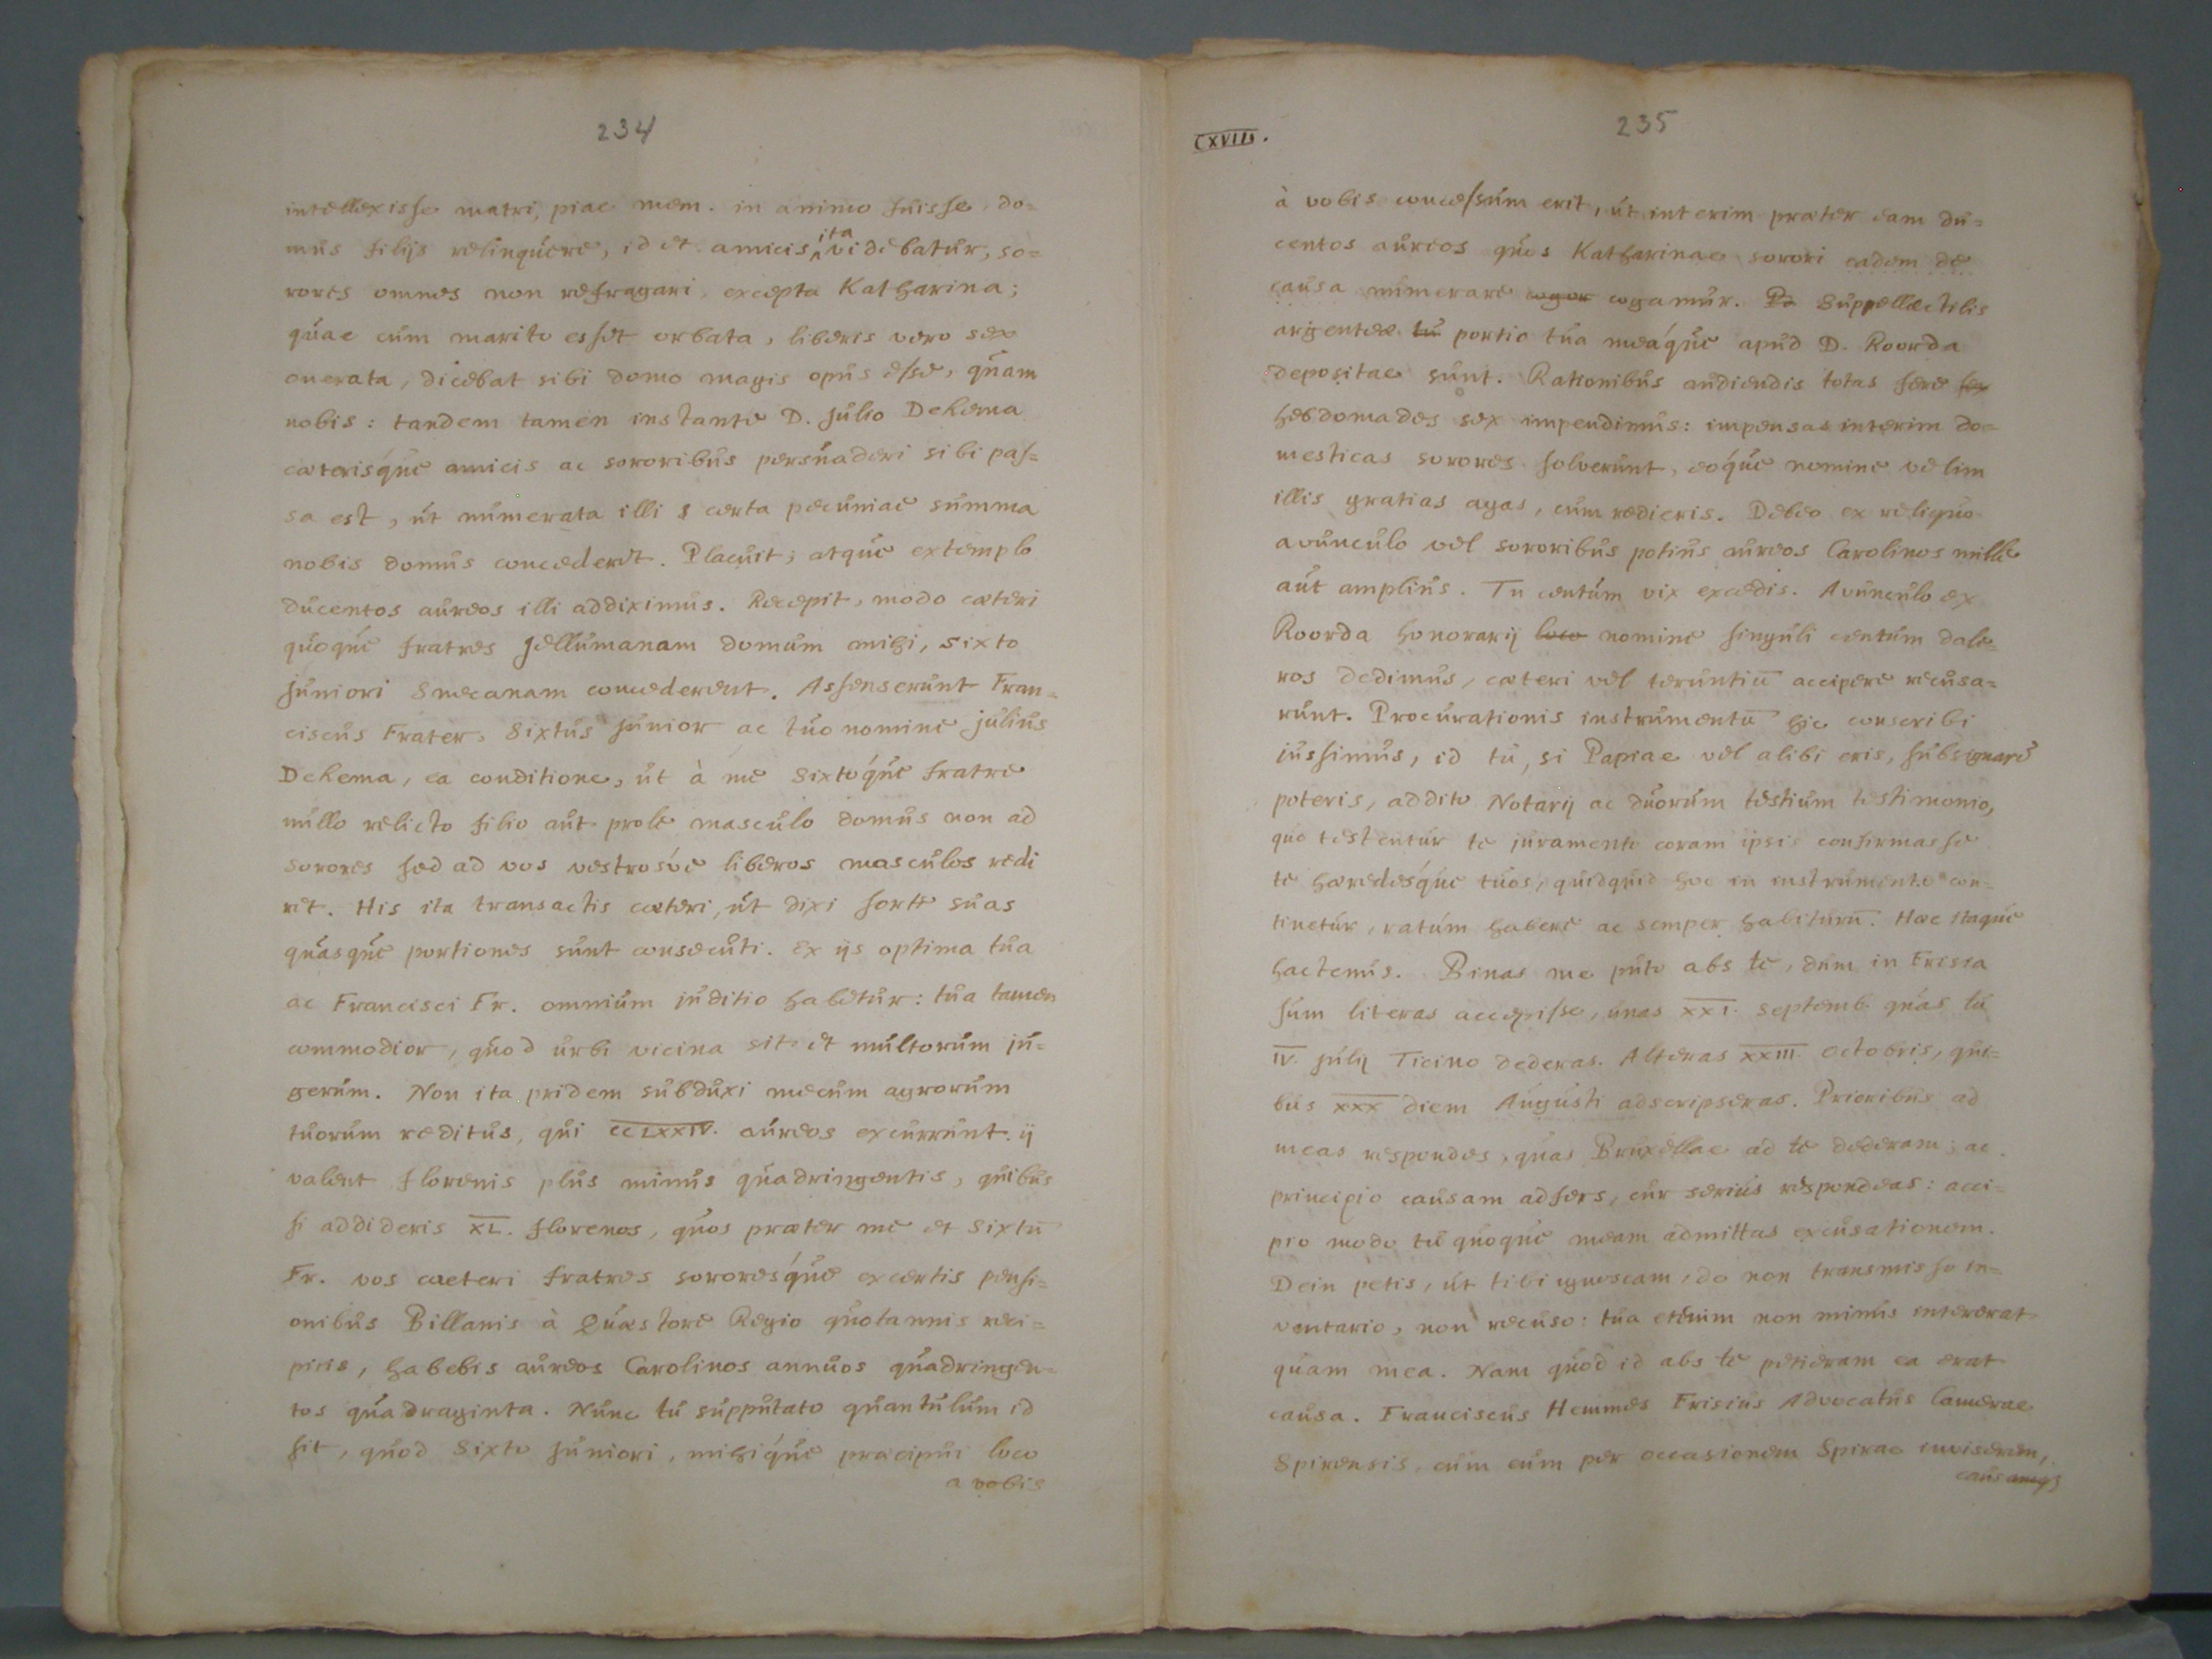 234
intellexisse matri, piae mem. in animo fuisse, do=
mus filijs relinquere, id et amicis ita videbatur, so=
rores omnes non refragari, excepta Katharina;
quae cum marito esset orbata, liberis vero sex
onerata, dicebat sibi domo magis opus esse, quam
nobis: tandem tamen instante D. Julio Dekema
caeterisque amicis ac sororibus persuaderi sibi pas=
sa est, ut numerata illi certa pecuniae summa
nobis domus concederet. Placuit; atque extemplo
ducentos aureos illi addiximus. Recepit, modo caeteri
quoque fratres Jellumanam domum mihi, Sixto
Juniori Smecanam concederent. Assenserunt Fran=
ciscus Frater, Sixtus Junior ac tuo nomine Julius
Dekema, ea conditione, ut à me Sixtoque fratre
nullo relicto filio aut prole masculo domus non ad
sorores sed ad vos vestrosve liberos masculos redi
ret. His ita transactis caeteri, ut dixi sorte suas
quasque portiones sunt consecuti. Ex ijs optima tua
ac Francisci Fr. omnium juditio habetur: tua tamen
commodior, quod urbi vicina sit et multorum ju=
gerum. Non ita pridem subduxi mecum agrorum
tuorum reditus, qui CCLXXIV. aureos excurrunt. ij
valent florenis plus minus quadringentis, quibus
si addideris XL. florenos, quos praeter me et Sixtū
Fr. vos caeteri fratres sororesque ex certis pensi=
onibus Billanis à Quaestore Regio quotannis reci=
pitis, habebis aureos Carolinos annuos quadringen=
tos quadraginta. Nunc tu supputato quantulum id
sit, quod Sixto Juniori, mihique praecipui loco
a vobis
CXVIII.
235
à vobis concessum erit, ut interim praeter eam du=
centos aureos quos Katharinae sorori eadem de
causa numerare cogor cogamur. Po Suppellectilis
argenteae tu portio tua meaque apud D. Roorda
depositae sunt. Rationibus audiendis totas fere sex
hebdomades sex impendimus: impensas interim do=
mesticas sorores solverunt, eoque nomine velim
illis gratias agas, cum redieris. Debeo ex reliquo
avunculo vel sororibus potius aureos Carolinos mille
aut amplius. Tu centum vix excedis. Avunculo ex
Roorda honorarij loco nomine singuli centum dale=
ros dedimus, caeteri vel teruntiū accipere recusa=
runt. Procurationis instrumentū hic conscribi
jussimus, id tu, si Papiae vel alibi eris, subsignare
poteris, addito Notarij ac duorum testium testimonio,
quo testentur te juramento coram ipsis confirmasse
te haeredesque tuos, quidquid hoc in instrumento con=
tinetur, ratum habere ac semper habiturū. Haec itaque
hactenus. Binas me puto abs te, dum in Frisia
sum literas accepisse, unas XXI. Septemb. quas tu
IV. Julij Ticino dederas. Alteras XXIII. Octobris, qui=
bus XXX diem Augusti adscripseras. Prioribus ad
meas respondes, quas Bruxellae ad te dederam; ac
principio causam adfers, cur serius respondeas: acci=
pio modo tu quoque meam admittas excusationem.
Dein petis, ut tibi ignoscam, de non transmisso in=
ventario, non recuso: tua etenim non minus intererat
quam mea. Nam quod id abs te petieram ea erat
causa. Franciscus Hemmes Frisius Advocatus Camerae
Spirensis, cum eum per occasionem Spirae inviserem,